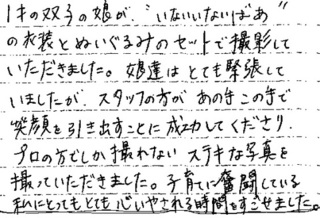 1才の双子の娘が、"いないいないばあ"
の衣装とぬいぐるみのセットで撮影して
いただきました。娘達はとても緊張して
いましたが、スタッフの方が あのキこの手で
笑顔を引き出すことに成功してくださり、
プロの方でしか撮れない ステキな写真を
撮っていただきました。子育てに奮闘している
私にとってもとても心いやされる時間をすごせました。